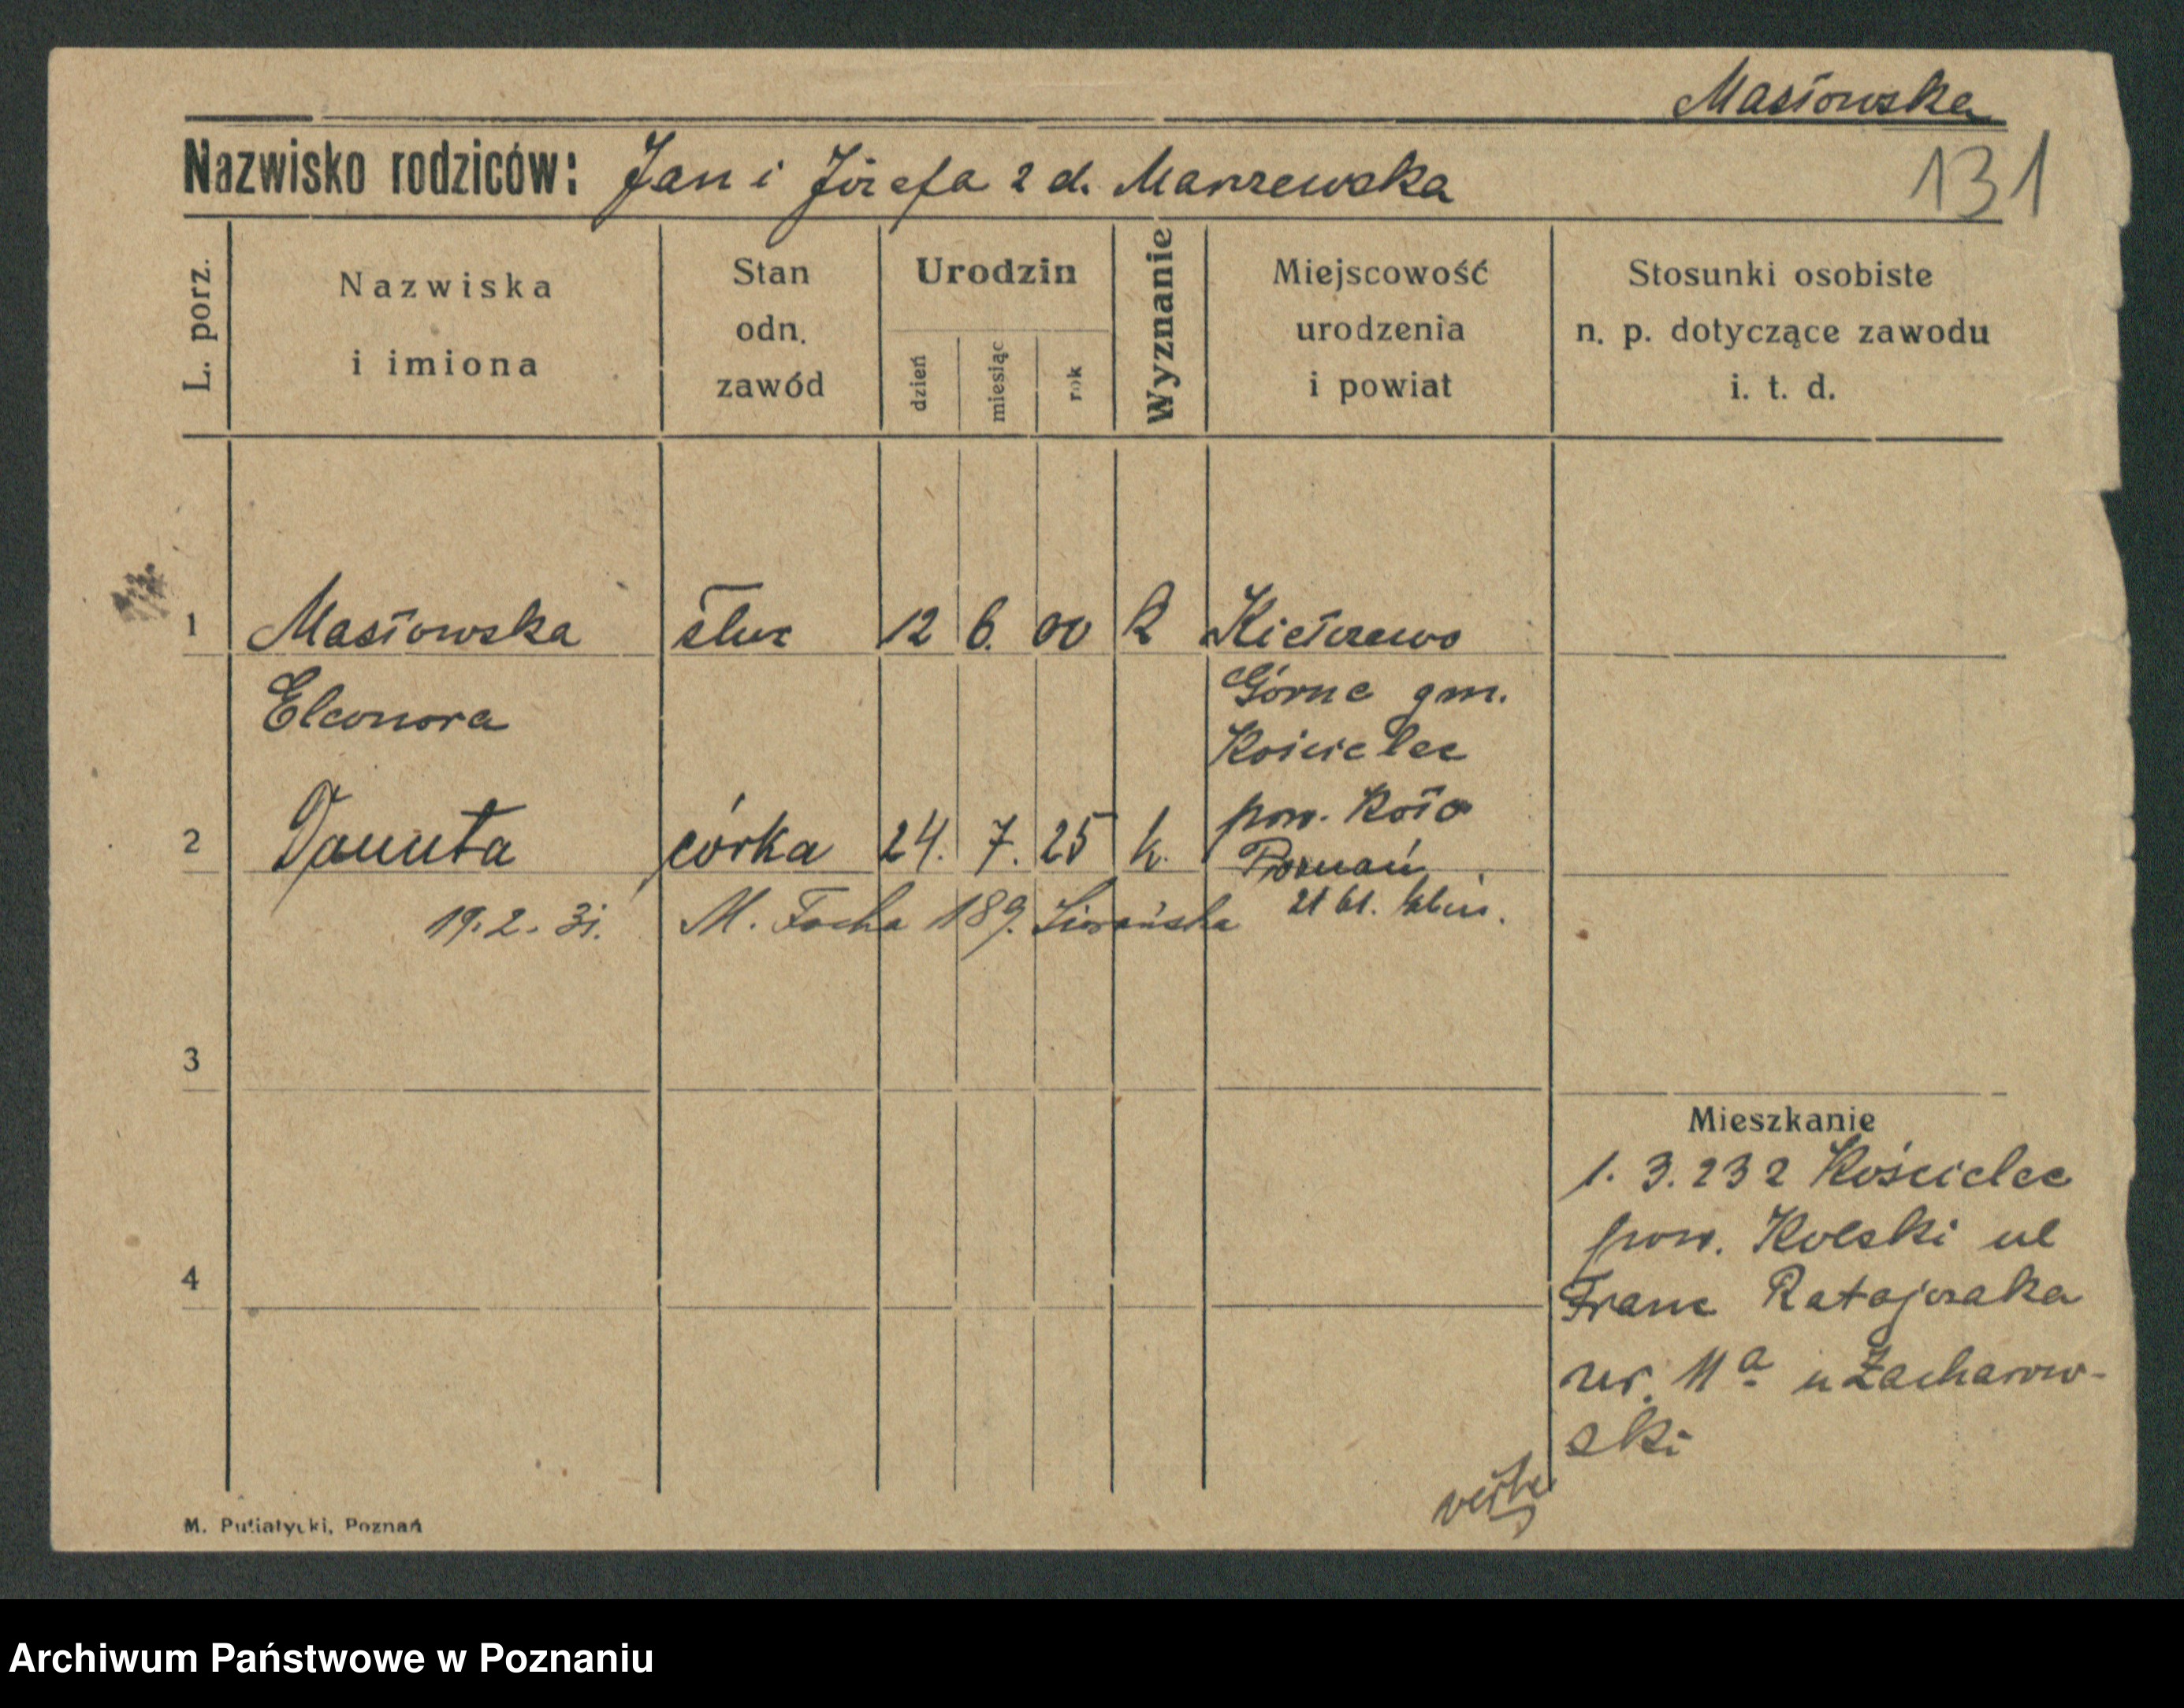 Masłowska
131
Nazwisko rodziców: Jan i Józefa z d. Marszewska
L. porz.
Nazwiska
i imiona
Stan
odn.
zawód
Urodzin
dzień
miesiąc
rok
Wyznanie
Miejscowość
urodzenia
i powiat
Stosunki osobiste
n. p. dotyczące zawodu
i. t. d.
1 Masłowska służ 12 6. 00 k Kiełczewo
Eleonora Górne gm.
Kościelec
pow. Koło
2 Danuta córka 24. 7. 25 k. Poznań
19.2.31. M. Focha 189.
3
Mieszkanie
1. 3. 232 Kościelec
pow. Kolski ul
4
Franc Ratajczaka
nr. 11a u Zacharow-
ski
verte
M. Putiatycki, Poznań
Archiwum Państwowe w Poznaniu